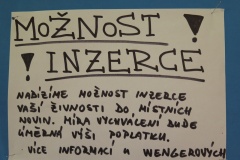 MOŽNOST !
! INZERCE
NABÍZÍME MOŽNOST INZERCE
VAŠÍ ŽIVNOSTI DO MÍSTNÍCH
NOVIN. MÍRA VYCHVÁLENÍ BUDE
ÚMĚRNÁ VÝŠI POPLATKU.
VÍCE INFORMACÍ U WENGEROVÝCH